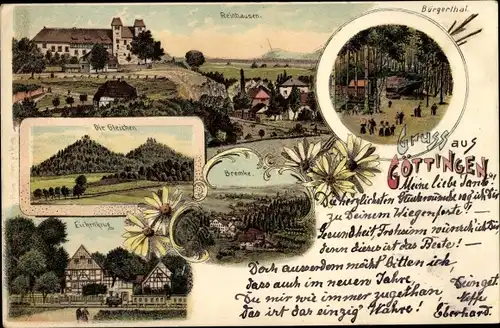 Reinhausen.
Bürgerthal.
Die Gleichen
Bremke.
Eichenkrug.
Gruss aus
Göttingen
Meine liebe Tante!
Die herzlichsten Glückwünsche sag' ich Dir
zu Deinem Wiegenfeste!
Gesundheit Frohsinn wünsch ich Dir
denn dieses ist das Beste! –
Doch ausserdem möcht bitten ich,
dass auch im neuen Jahre
Du mir wie immer zugethan,
Das ist das einzig Wahre!
Dein get.
Neffe
Eberhard.